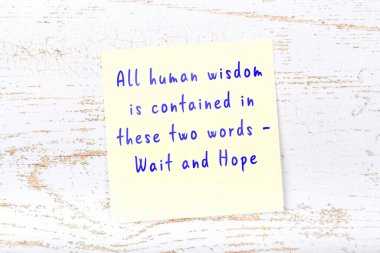 All human wisdom
is contained in
these two words -
Wait and Hope